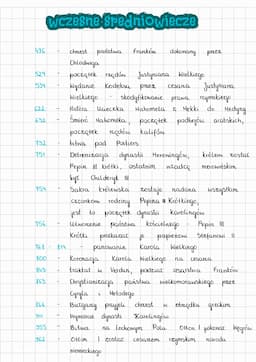 wczesne średniowiecze
496 - chrzest państwa Franków dokonany przez
Chlodwiga
527 - początek rządów Justyniana Wielkiego
534 - wydanie Kodeksu przez cesarza Justyniana
Wielkiego - skodyfikowanie prawa rzymskiego
622 - Hidżra Ucieczka Mahometa z Mekki do Medyny
632 - Śmierć Mahometa, początek podbojów arabskich,
początek rządów kalifów
732 - bitwa pod Poitiers
751 - Detronizacja dynastii Merowingów, królem został
Pepin III krótki, ostatnim władcą merowińskim
był Childeryk III
754 - Sakra królewska zostaje nadana wszystkim
członkom rodziny Pepina III Krótkiego,
jest to początek dynastii Karolingów
756 - Utworzenie państwa kościelnego - Pepin III
Krótki przekazał je papieżowi Stefanowi II
768 - 814 - panowanie Karola Wielkiego
800 - Koronacja Karola Wielkiego na cesarza
843 - traktat w Verdun, podział cesarstwa Franków
863 - Chrystianizacja państwa wielkomorawskiego przez
Cyryla i Metodego
864 - Bułgarzy przyjęli chrzest w obrządku greckim
911 - Wymarcie dynastii Karolingów
955 - Bitwa na Lechowym Polu. Otton I pokonał Węgrów
962 - Otton I został cesarzem rzymskim narodu
niemieckiego